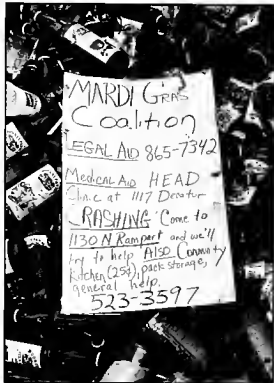 MARDI GRAS
Coalition
LEGAL AID 865-7342
Medical AID HEAD
Clinic at 1117 Decatur
CRASHING Come to
1130 N Rampart and we'll
try to help ALSO Community
Kitchen (25¢), pack storage,
general help.
523-3597